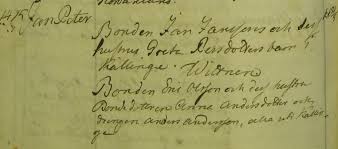 Jan Peter
Bonden Jan Janssons och dess
hustru Greta Persdotters barn i
Källinge. Wittnen
Bonden Eric Olsson och dess hustru
Anna Andersdotter och
drengen Anders Andersson, alla uti Källin-
ge